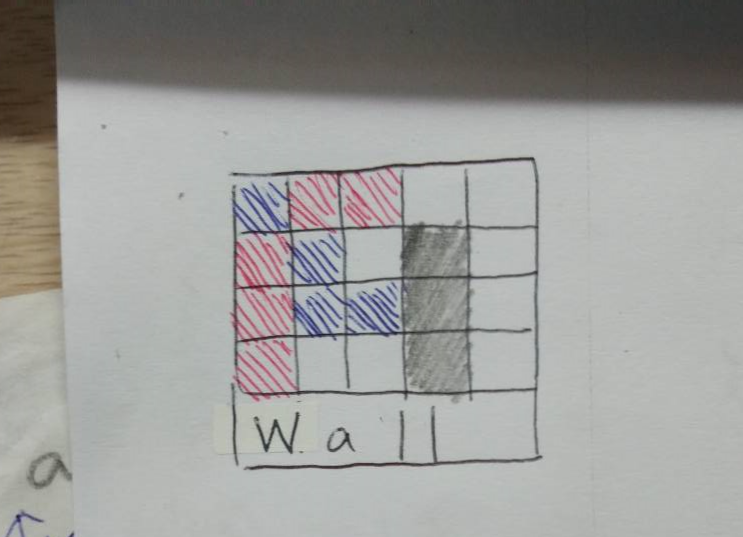 Wall
a